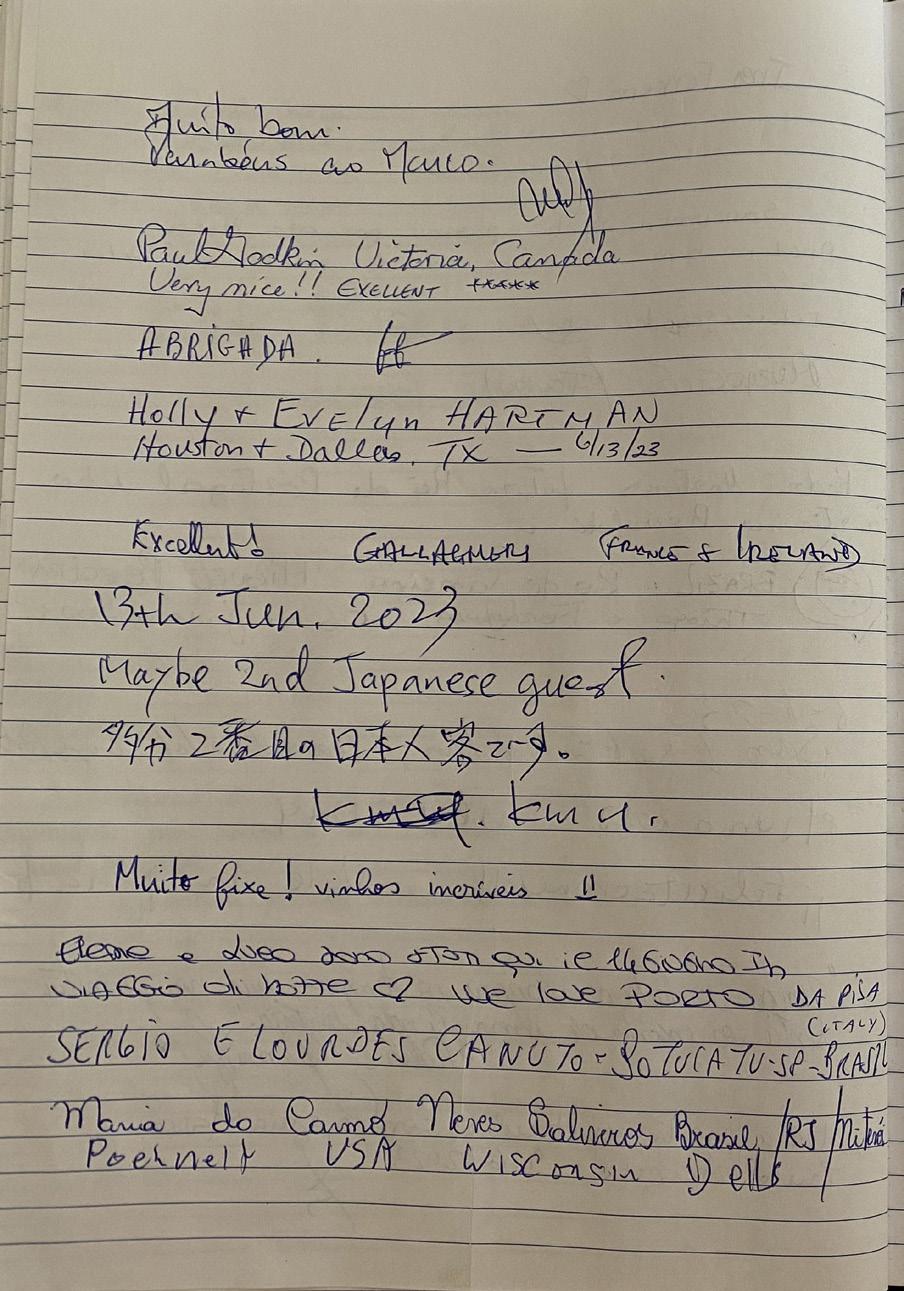 Muito bom.
Parabéns ao Marco.
Paul Godkin Victoria, Canada
Very nice!! EXELLENT *****
ABRIGADA.
Holly + Evelyn HARTMAN
Houston + Dallas, TX — 6/13/23
Excellent! GALLAGHERS (FRANCE & IRELAND)
13th Jun. 2023
Maybe 2nd Japanese guest.
多分2番目の日本人客です。
Muito fixe! vinhos incríveis !!
e sono stati qui il 14 GIUGNO In
VIAGGIO di nozze ♡ We love PORTO DA PISA
(ITALY)
SERGIO E LOURDES CANUTO - BOTUCATU-SP-BRASIL
Maria do Carmo Neves Salineros Brasil/RJ/Niterói
Poehnelt USA Wisconsin Dells